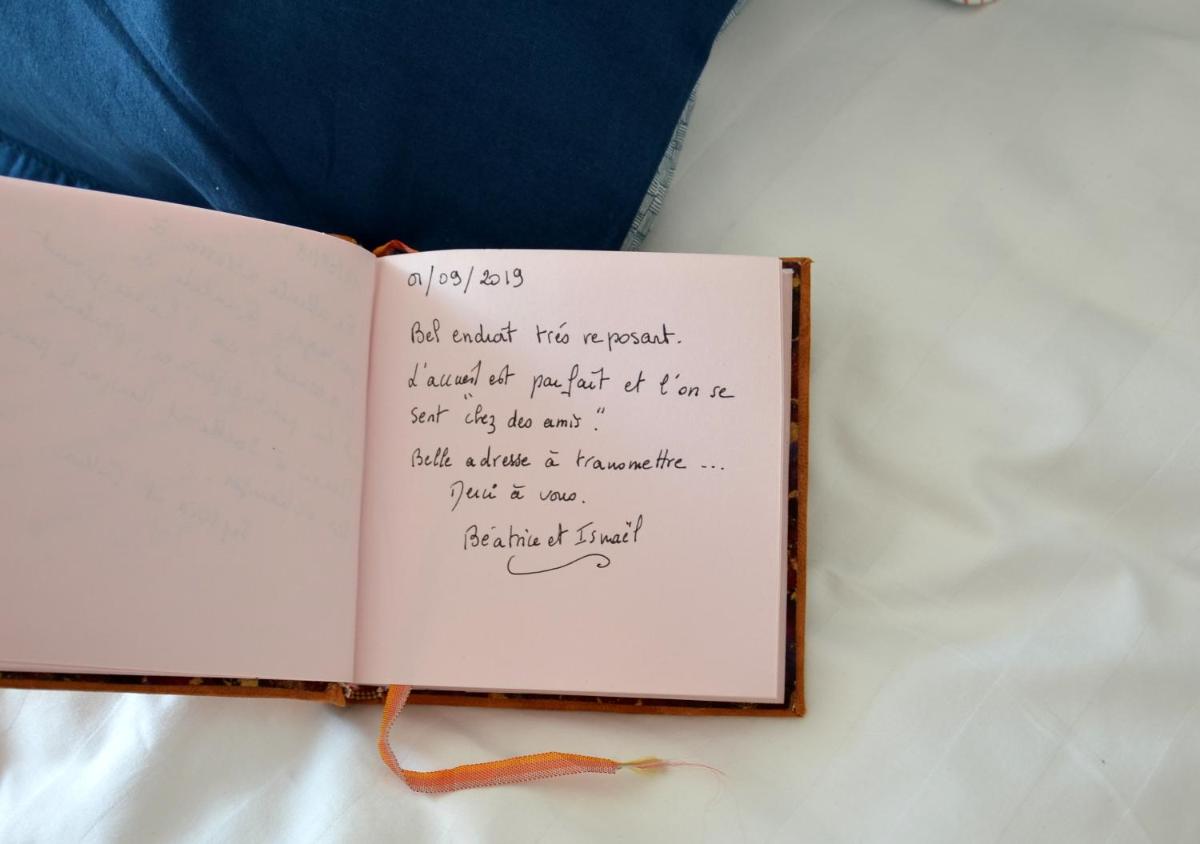 01/09/2019
Bel endroit trés reposant.
L'accueil est parfait et l'on se
sent "chez des amis".
Belle adresse à transmettre ...
Merci à vous.
Béatrice et Ismaël